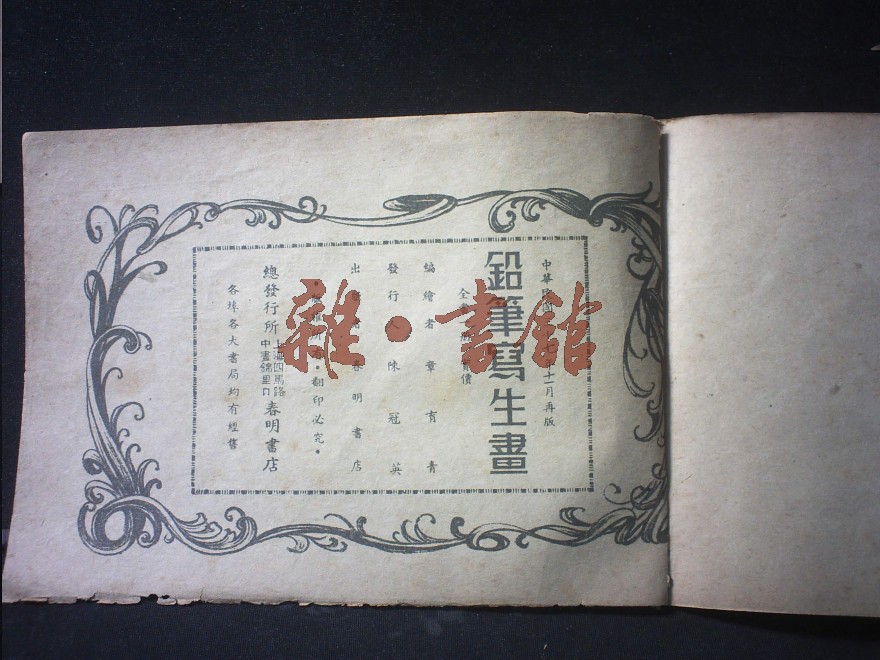 中華民國 七年十一月再版
鉛筆寫生畫
全 價
編繪者 章育青
發行人 陳冠英
出 春明書店
所有・翻印必究・
總發行所 上海四馬路中晝錦里口 春明書店
各埠各大書局均有經售
雜・書館